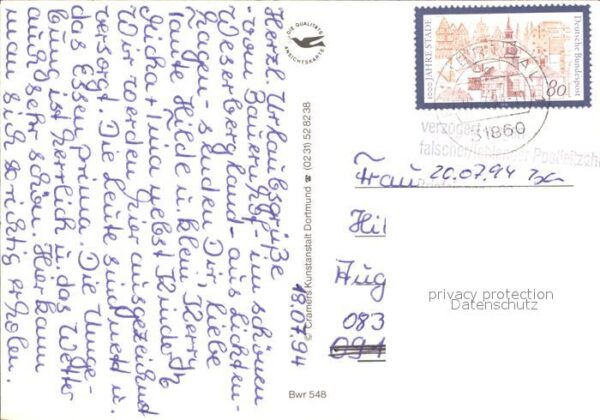 18.07.94
Herzl. Urlaubsgrüße
vom Bauernhof - im schönen
Weserbergland - aus Lichten-
hagen - senden Dir, liebe
Tante Hilde u. klein Kerry
Micha + Ina nebst Kinder.
Wir werden hier ausgezeichnet
versorgt. Die Leute sind nett u.
das Essen prima. Die Umge-
bung ist herrlich u. das Wetter
auch sehr schön. Hier kann
man sich richtig erholen.
DIE QUALITÄTS
ANSICHTSKARTE
© Cramers Kunstanstalt Dortmund ☎ (0231) 52 82 38
Bwr 548
1000 JAHRE STADE
Deutsche Bundespost
80
31860
verzogen
falsche/fehlender Postleitzahl
Frau 20.07.94
Hil
Aug
083
privacy protection
Datenschutz